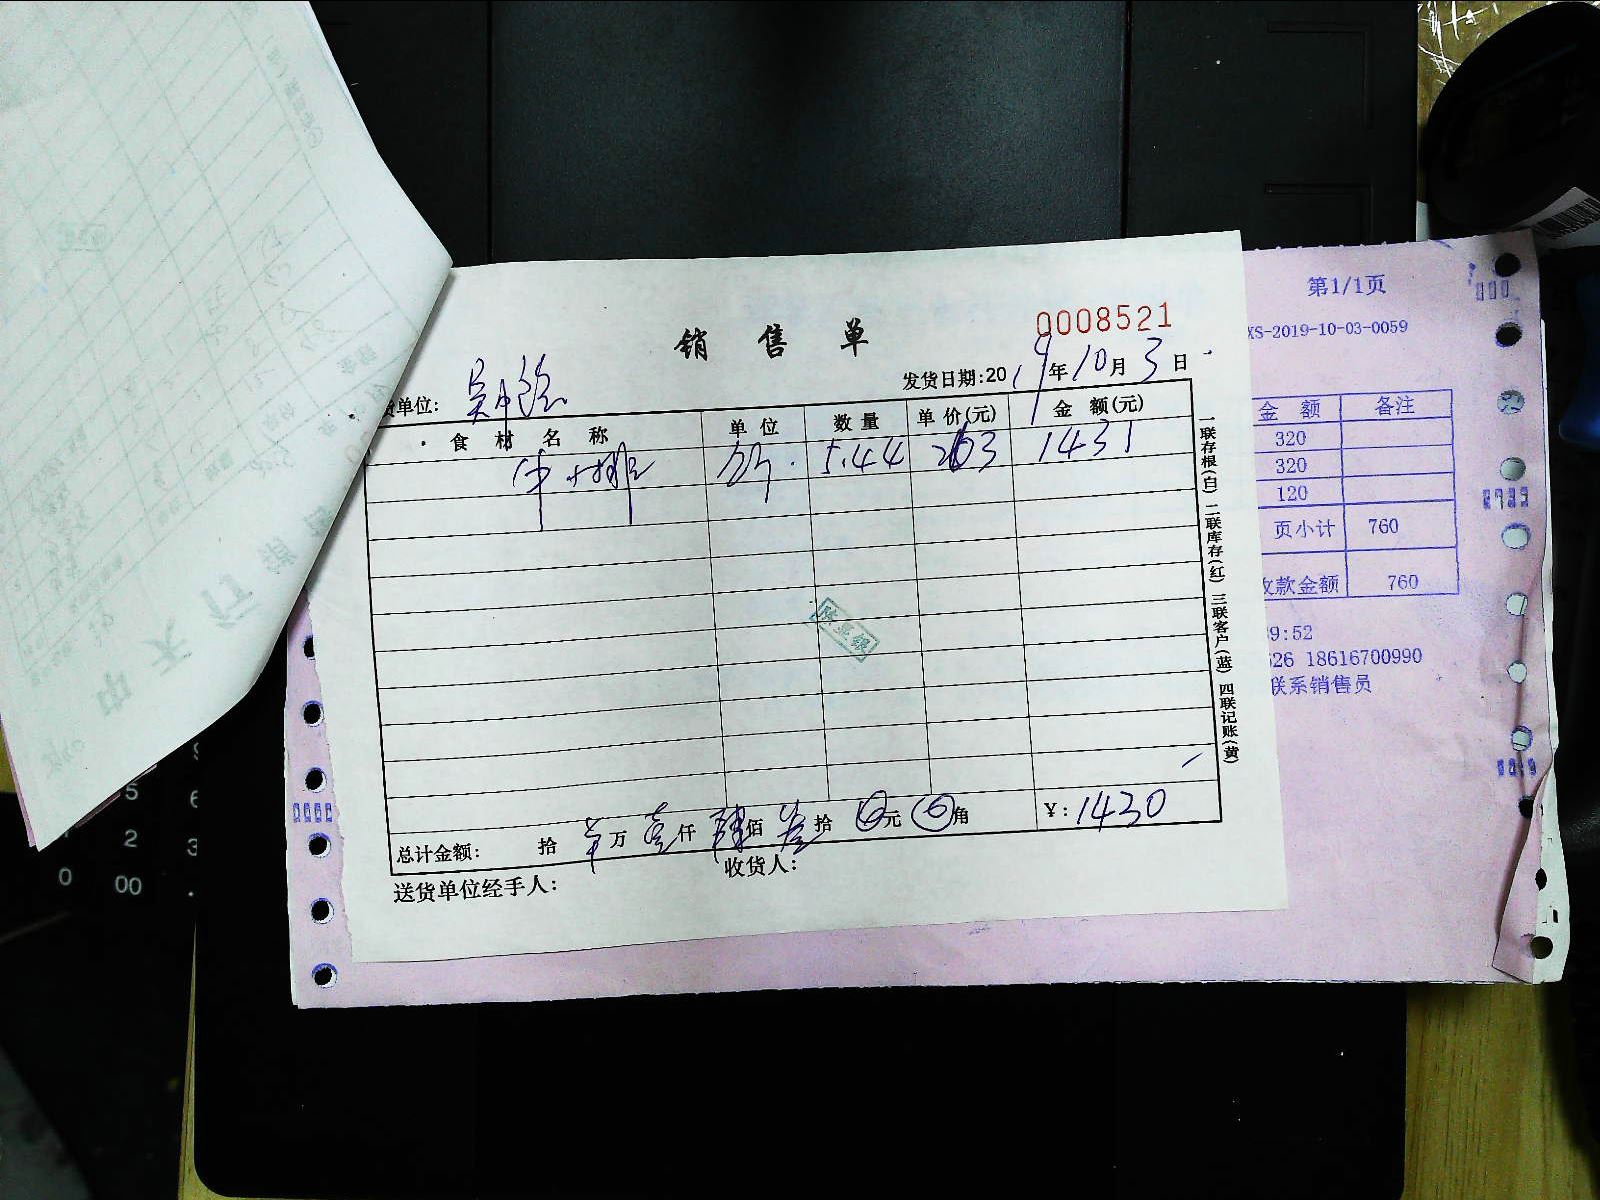 销 售 单
0008521
发货日期:2019年10月3日
货单位:
食 材 名 称 单 位 数 量 单 价(元) 金 额(元)
中排 斤 5.44 263 1431
总计金额: 拾 万 壹仟 肆佰 叁拾 0元 0角 ¥:1430
送货单位经手人: 收货人:
一联存根(白) 二联库存(红) 三联客户(蓝) 四联记账(黄)
第1/1页
XS-2019-10-03-0059
金 额 备注
320
320
120
页小计 760
收款金额 760
9:52
626 18616700990
联系销售员
5 6
2 3
0 00 .